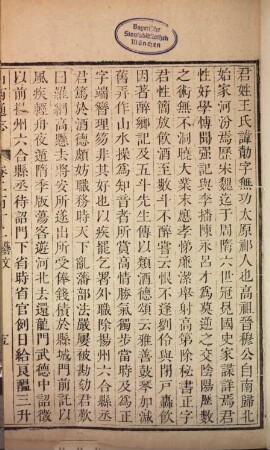 Bayerische
Staatsbibliothek
München
君姓王氏諱勣字無功太原祁人也高祖晉穆公自南歸北
始家河汾焉歷宋魏迄于周隋六世冠冕國史家諜詳焉君
性好學博聞强記與李播陳永呂才為莫逆之交陰陽歷數
之術無不洞曉大業末應孝悌廉潔舉射高第除秘書正字
君性簡放飲酒至數斗不醉嘗云恨不逢劉伶與閉戶轟飲
因著醉鄉記及五斗先生傳以類酒德頌云雅善鼓琴加減
舊弄作山水操為知音者所賞高情勝氣獨步當時及為正
字端簪理笏非其好也以疾罷乞署外職除揚州六合縣丞
君篤於酒德頗妨職務時天下亂藩部法嚴屢被勘劾君歎
曰羅網高懸去將安所遂出所受俸錢積於縣城門前託以
風疾輕舟夜遁隋季版蕩客遊河北去還龍門武德中詔徵
以前揚州六合縣丞待詔門下省時省官例日給良醞三升
山西通志